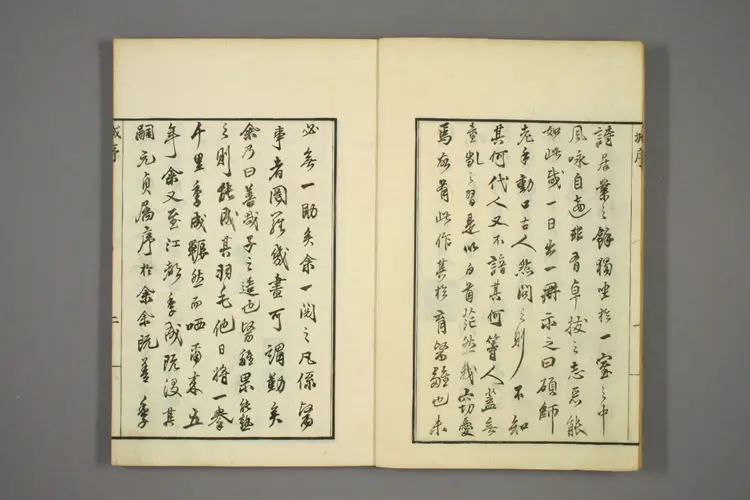 讀居業之餘獨坐於一室之中
風咏自適非有卓拔之志焉能
如此哉一日出一冊示之曰碩師
老手動口古人然問之則不知
其何代人又不諳其何等人蓋無
童齔之習是以白首茫然我切憂
焉故有此作其於育嬰雖也未
必無一助矣余一閱之凡係醫
事者網羅幾盡可謂勤矣
余乃曰善哉子之造也醫雖果能熟
之則能成其羽毛他日將一舉
千里季成囅然而哂爾來五
年余又至江都季成既沒其
嗣元貞屬序於余余既善季
序
一
序
二